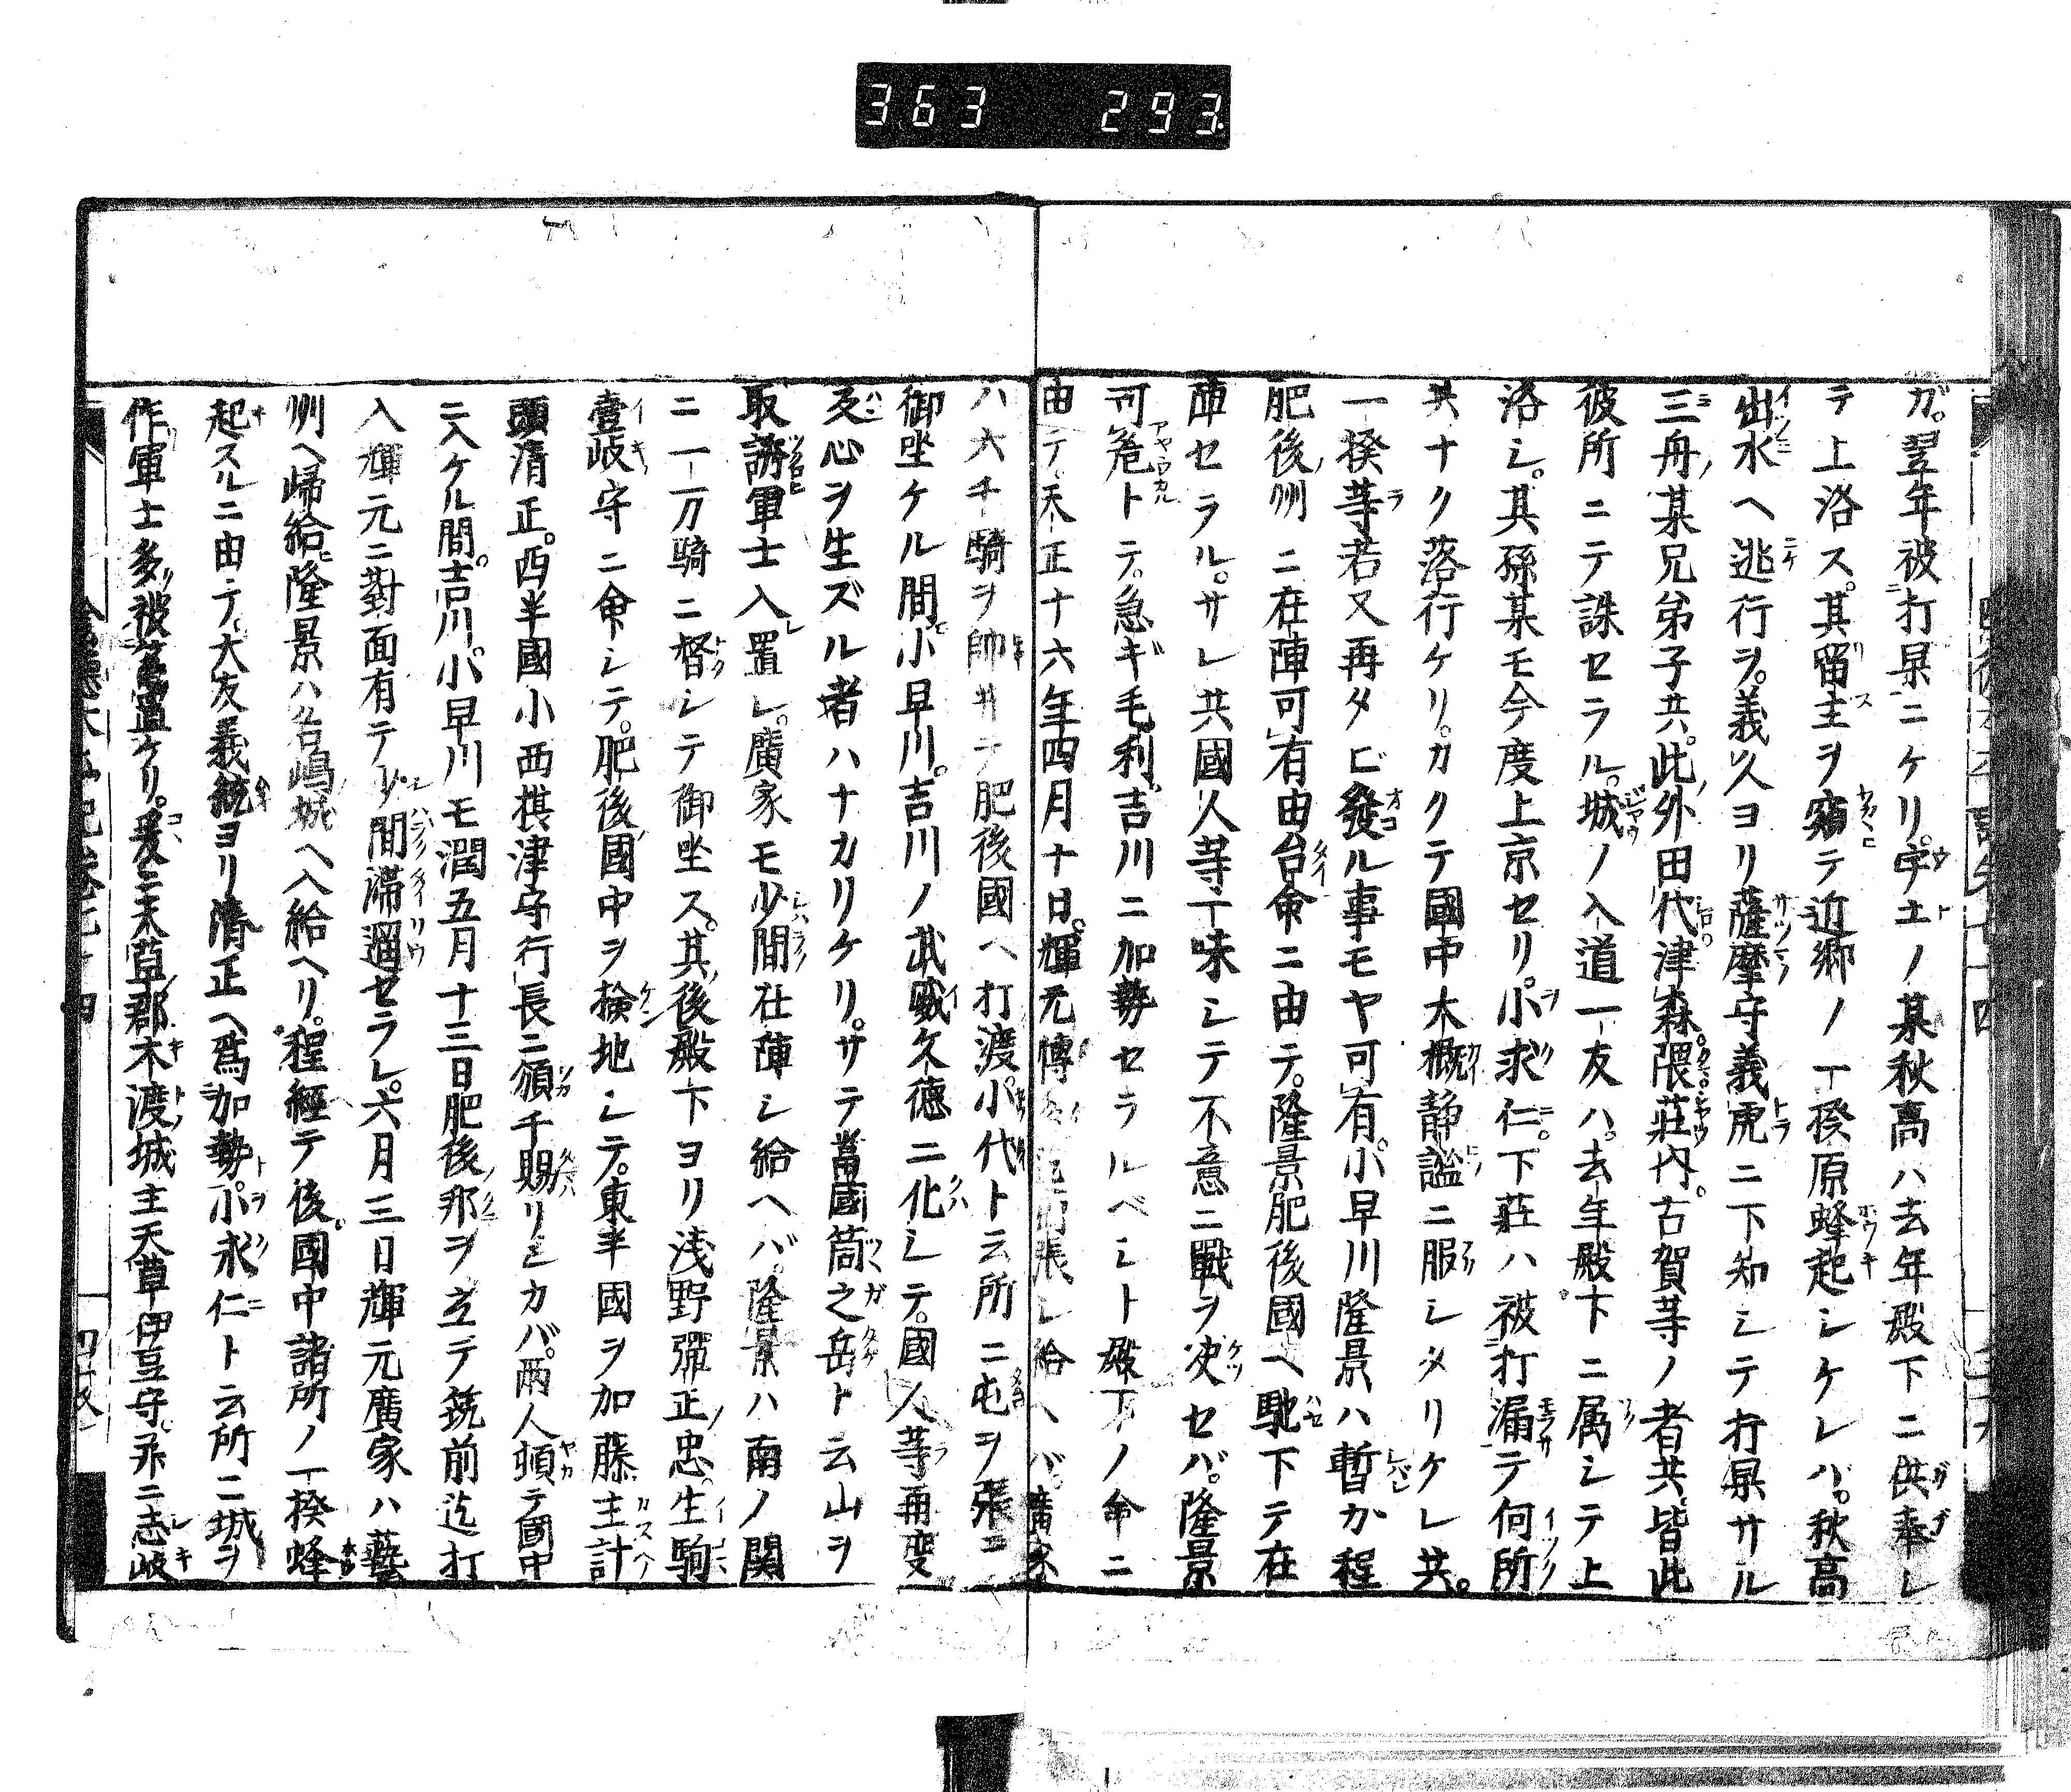 363 293
ガ。翌年被打果ニケリ。宇土ノ某秋高ハ去年殿下ニ供奉シ
テ上洛ス。其留主ヲ窺テ近郷ノ一揆原蜂起シケレバ。秋高
出水ヘ迯行ヲ。義久ヨリ薩摩守義虎ニ下知シテ打果サル
三舟某兄弟子共。此外田代津森隈莊内。古賀等ノ者共皆此
彼所ニテ誅セラル。城ノ入道一友ハ。去年殿下ニ属シテ上
洛シ。其孫某モ今度上京セリ。小求仁。下莊ハ被打漏テ何所
共ナク落行ケリ。カクテ國中大概静謐ニ服シメリケレ共。
一揆等若又再タビ發ル事モヤ可有。小早川隆景ハ暫カ程
肥後州ニ在陣可有由台命ニ由テ。隆景肥後國ヘ馳下テ在
陣セラル。サレ共國人等一味シテ不意ニ戰ヲ决セバ。隆景
可危トテ。急ギ毛利。吉川ニ加勢セラルベシト殿下ノ命ニ
由テ。天正十六年四月十日。輝元博 張シ給ヘバ。廣家
ハ六千騎ヲ帥サテ肥後國ヘ打渡。小代ト云所ニ屯ヲ張ニ
御坐ケル間。小早川。吉川ノ武威久德ニ化シテ。國人等再變
反心ヲ生ズル者ハナカリケリ。サテ當國筒之岳ト云山ヲ
取誘軍士入置レ。廣家モ少間在陣シ給ヘバ。隆景ハ南ノ関
ニ一万騎ニ督シテ御坐ス。其後殿下ヨリ浅野彈正忠。生駒
壹岐守ニ命シテ。肥後國中ヲ検地シテ。東半國ヲ加藤主計
頭清正。西半國小西摂津守行長ニ頒千賜リシカバ。兩人頓テ國中
ニ入ケル間。吉川。小早川モ潤五月十三日肥後那ヲ立テ筑前迄打
入輝元ニ對面有テ少間滞遛セラレ。六月三日輝元廣家ハ藝
州ヘ歸給ヒ隆景ハ名嶋城ヘ入給ヘリ。程經テ後。國中諸所ノ一揆蜂
起スルニ由テ。大友義統ヨリ清正ヘ爲加勢。小求仁ト云所ニ城ヲ
作軍士多被籠置ケリ。爰ニ天草郡木渡城主天草伊豆守。并ニ志岐